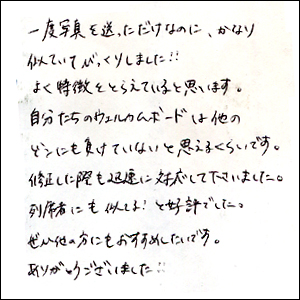 一度写真を送っただけなのに、かなり
似ていてびっくりしました!!
よく特徴をとらえていると思います。
自分たちのウェルカムボードは他の
どこにも負けていないと思えるくらいです。
修正した際も迅速に対応して下さいました。
列席者にも似てる!と好評でした。
ぜひ他の方にもおすすめしたいです。
ありがとうございました!!